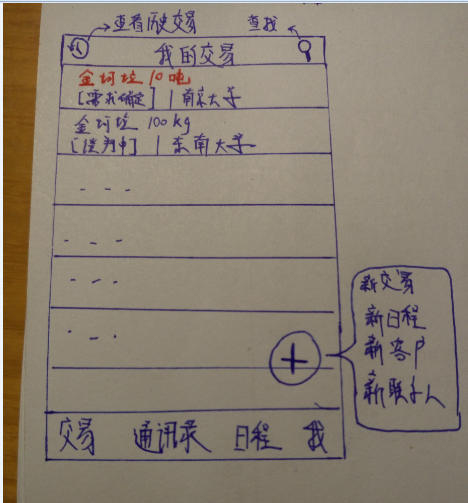 查看历史交易
查找
我的交易
金坷垃 10吨
[需求确定] | 南京大学
金坷垃 100kg
[谈判中] | 东南大学
- - -
- - -
- - -
- - -
+
新交易
新日程
新客户
新联系人
交易 通讯录 日程 我